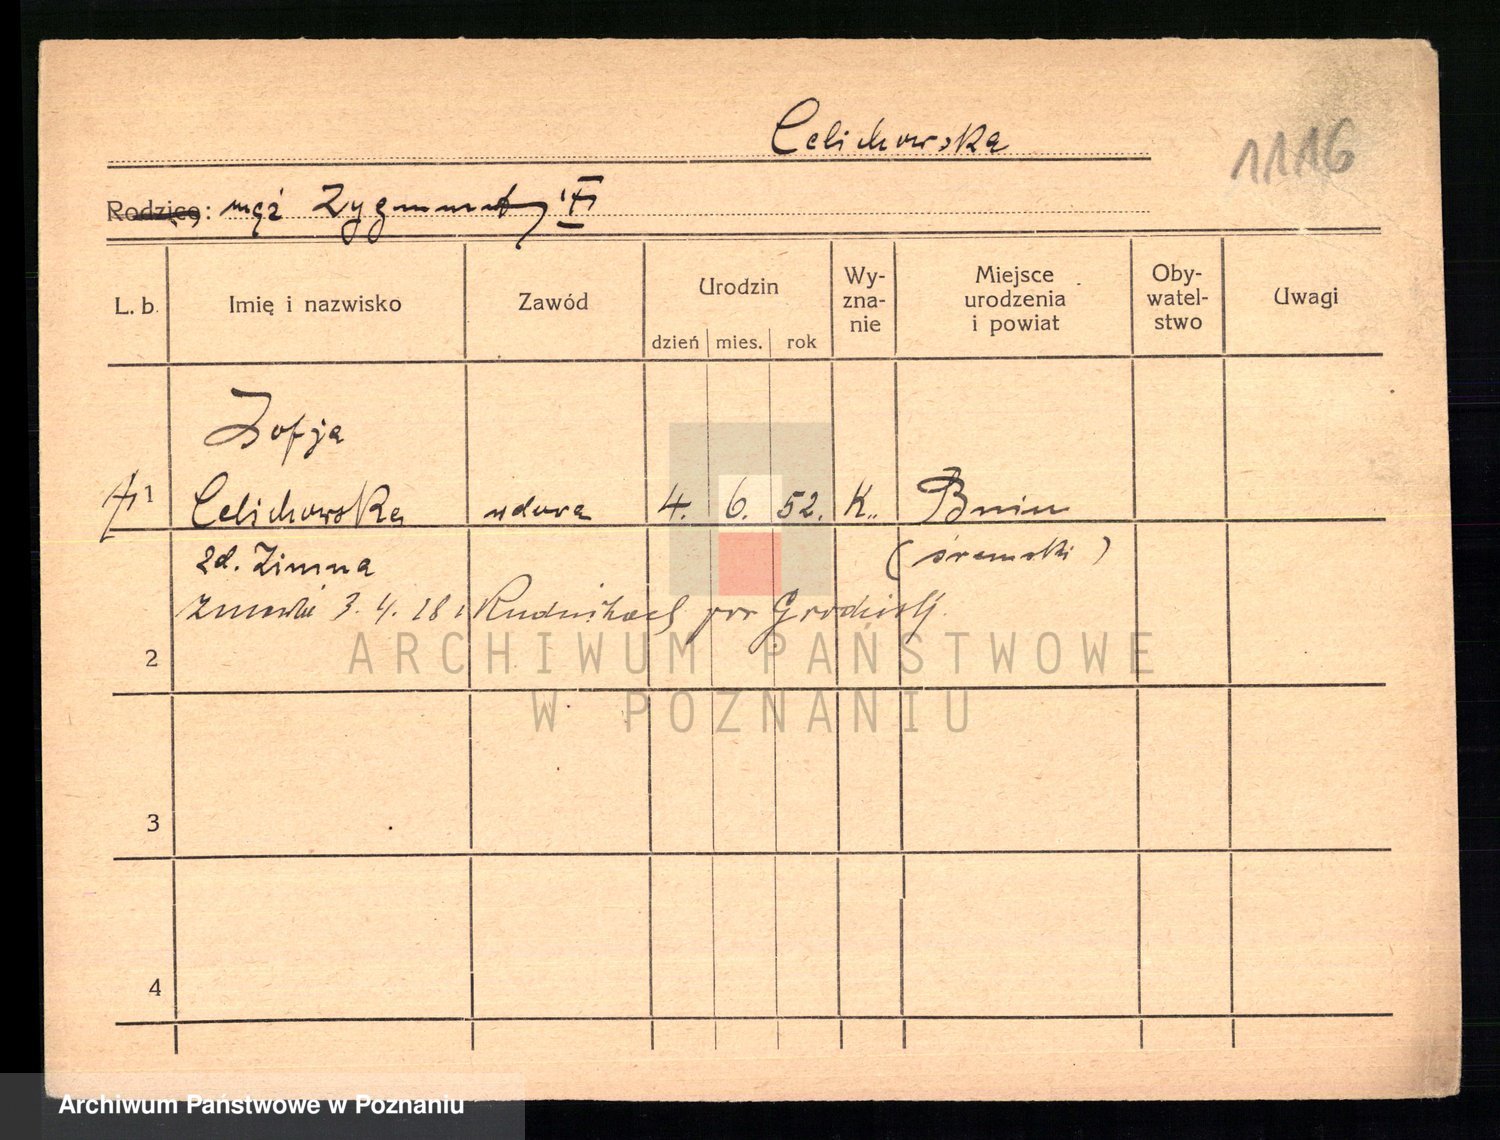 Celichowska
1116
Rodzice: mąż Zygmunt,
L. b. Imię i nazwisko Zawód Urodzin dzień mies. rok Wy-zna-nie Miejsce urodzenia i powiat Oby-watel-stwo Uwagi
Zofja
1 Celichowska wdowa 4. 6. 52. K. Bnin
zd. Zimna (śremski)
zmarła 3. 4. 18 Rudnikach por Grodzisk
2
ARCHIWUM PAŃSTWOWE
W POZNANIU
3
4
Archiwum Państwowe w Poznaniu